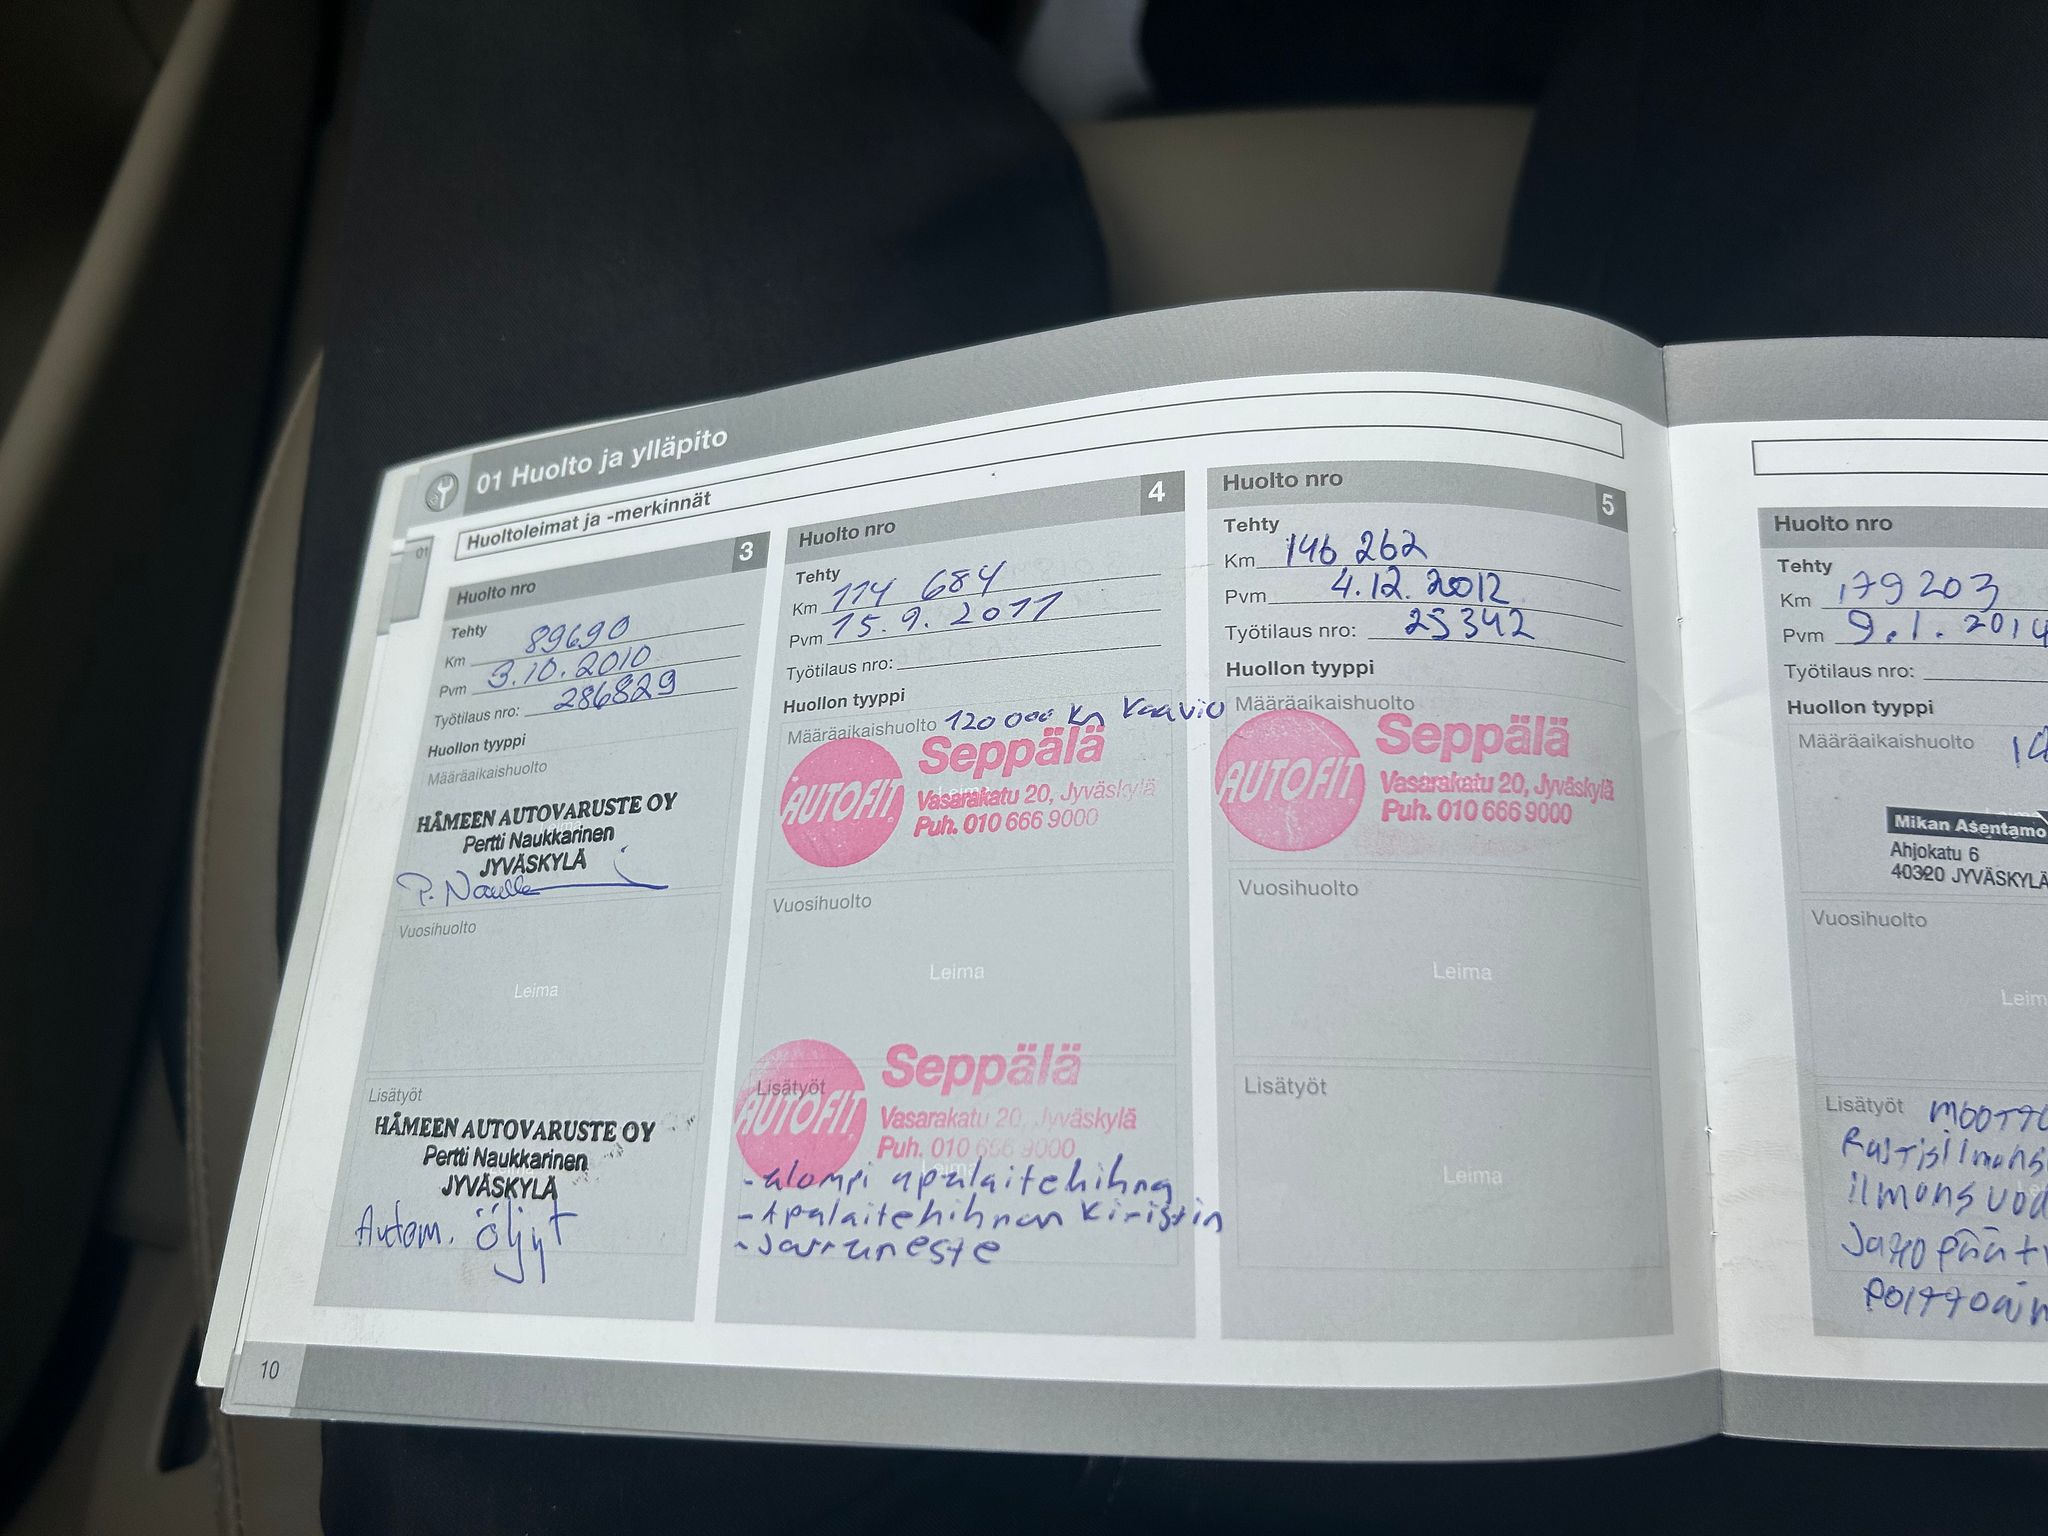 01 Huolto ja ylläpito
Huoltoleimat ja -merkinnät
01
Huolto nro 3
Tehty
Km 89690
Pvm 3.10.2010
Työtilaus nro: 286829
Huollon tyyppi
Määräaikaishuolto
HÄMEEN AUTOVARUSTE OY
Pertti Naukkarinen
JYVÄSKYLÄ
Vuosihuolto
Leima
Lisätyöt
HÄMEEN AUTOVARUSTE OY
Pertti Naukkarinen
JYVÄSKYLÄ
Autom. öljyt
Huolto nro 4
Tehty
Km 114 684
Pvm 15.9.2011
Työtilaus nro:
Huollon tyyppi
Määräaikaishuolto 120 000 km Kaavio
AUTOFIT
Seppälä
Vasarakatu 20, Jyväskylä
Puh. 010 666 9000
Vuosihuolto
Leima
Lisätyöt
AUTOFIT
Seppälä
Vasarakatu 20, Jyväskylä
Puh. 010 666 9000
Leima
- apulaitehihna
- Apulaitehihnan Kiristin
- Jarruneste
Huolto nro 5
Tehty
Km 146 262
Pvm 4.12.2012
Työtilaus nro: 25342
Huollon tyyppi
Määräaikaishuolto
AUTOFIT
Seppälä
Vasarakatu 20, Jyväskylä
Puh. 010 666 9000
Vuosihuolto
Leima
Lisätyöt
Leima
Huolto nro
Tehty
Km 179203
Pvm 9.1.2014
Työtilaus nro:
Huollon tyyppi
Määräaikaishuolto
Mikan Asentamo
Ahjokatu 6
40320 JYVÄSKYLÄ
Vuosihuolto
Leim
Lisätyöt MOOTTO
ilmans
JaKO pää
POLTTOAIN
10